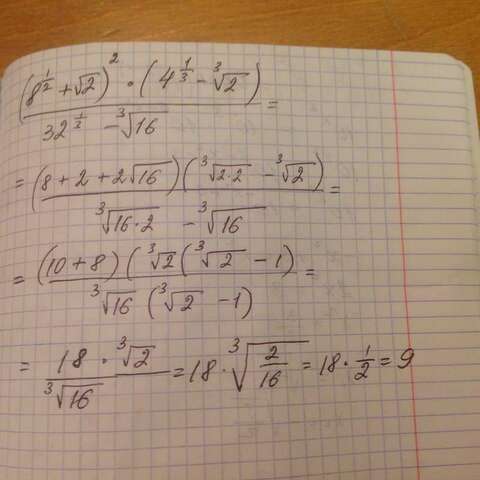 ((8^{1/2} + √2)² · (4^{1/3} - ∛2)) / (32^{1/3} - ∛16) =
= ((8 + 2 + 2√16)(∛(2·2) - ∛2)) / (∛(16·2) - ∛16) =
= ((10 + 8)(∛2(∛2 - 1)) / (∛16(∛2 - 1)) =
= (18 · ∛2) / ∛16 = 18 · ∛(2/16) = 18 · 1/2 = 9